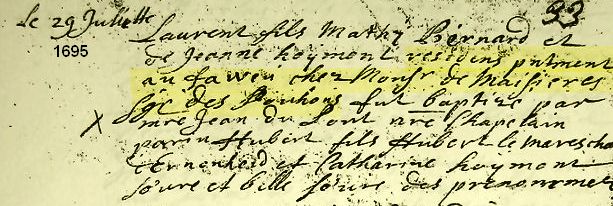 33
Le 29 Juillette
1695
Laurent fils Mathy Bernard et
de Jeanne hoymont residens pntment
au faweu chez Monsr de Maisieres
Sgr des Bouhons fut baptize par
mre Jean du Pont nre Chapelain
X
parin Hubert fils Hubert le maresch
et Catharine hoymont
soure et belle soure des prenommé